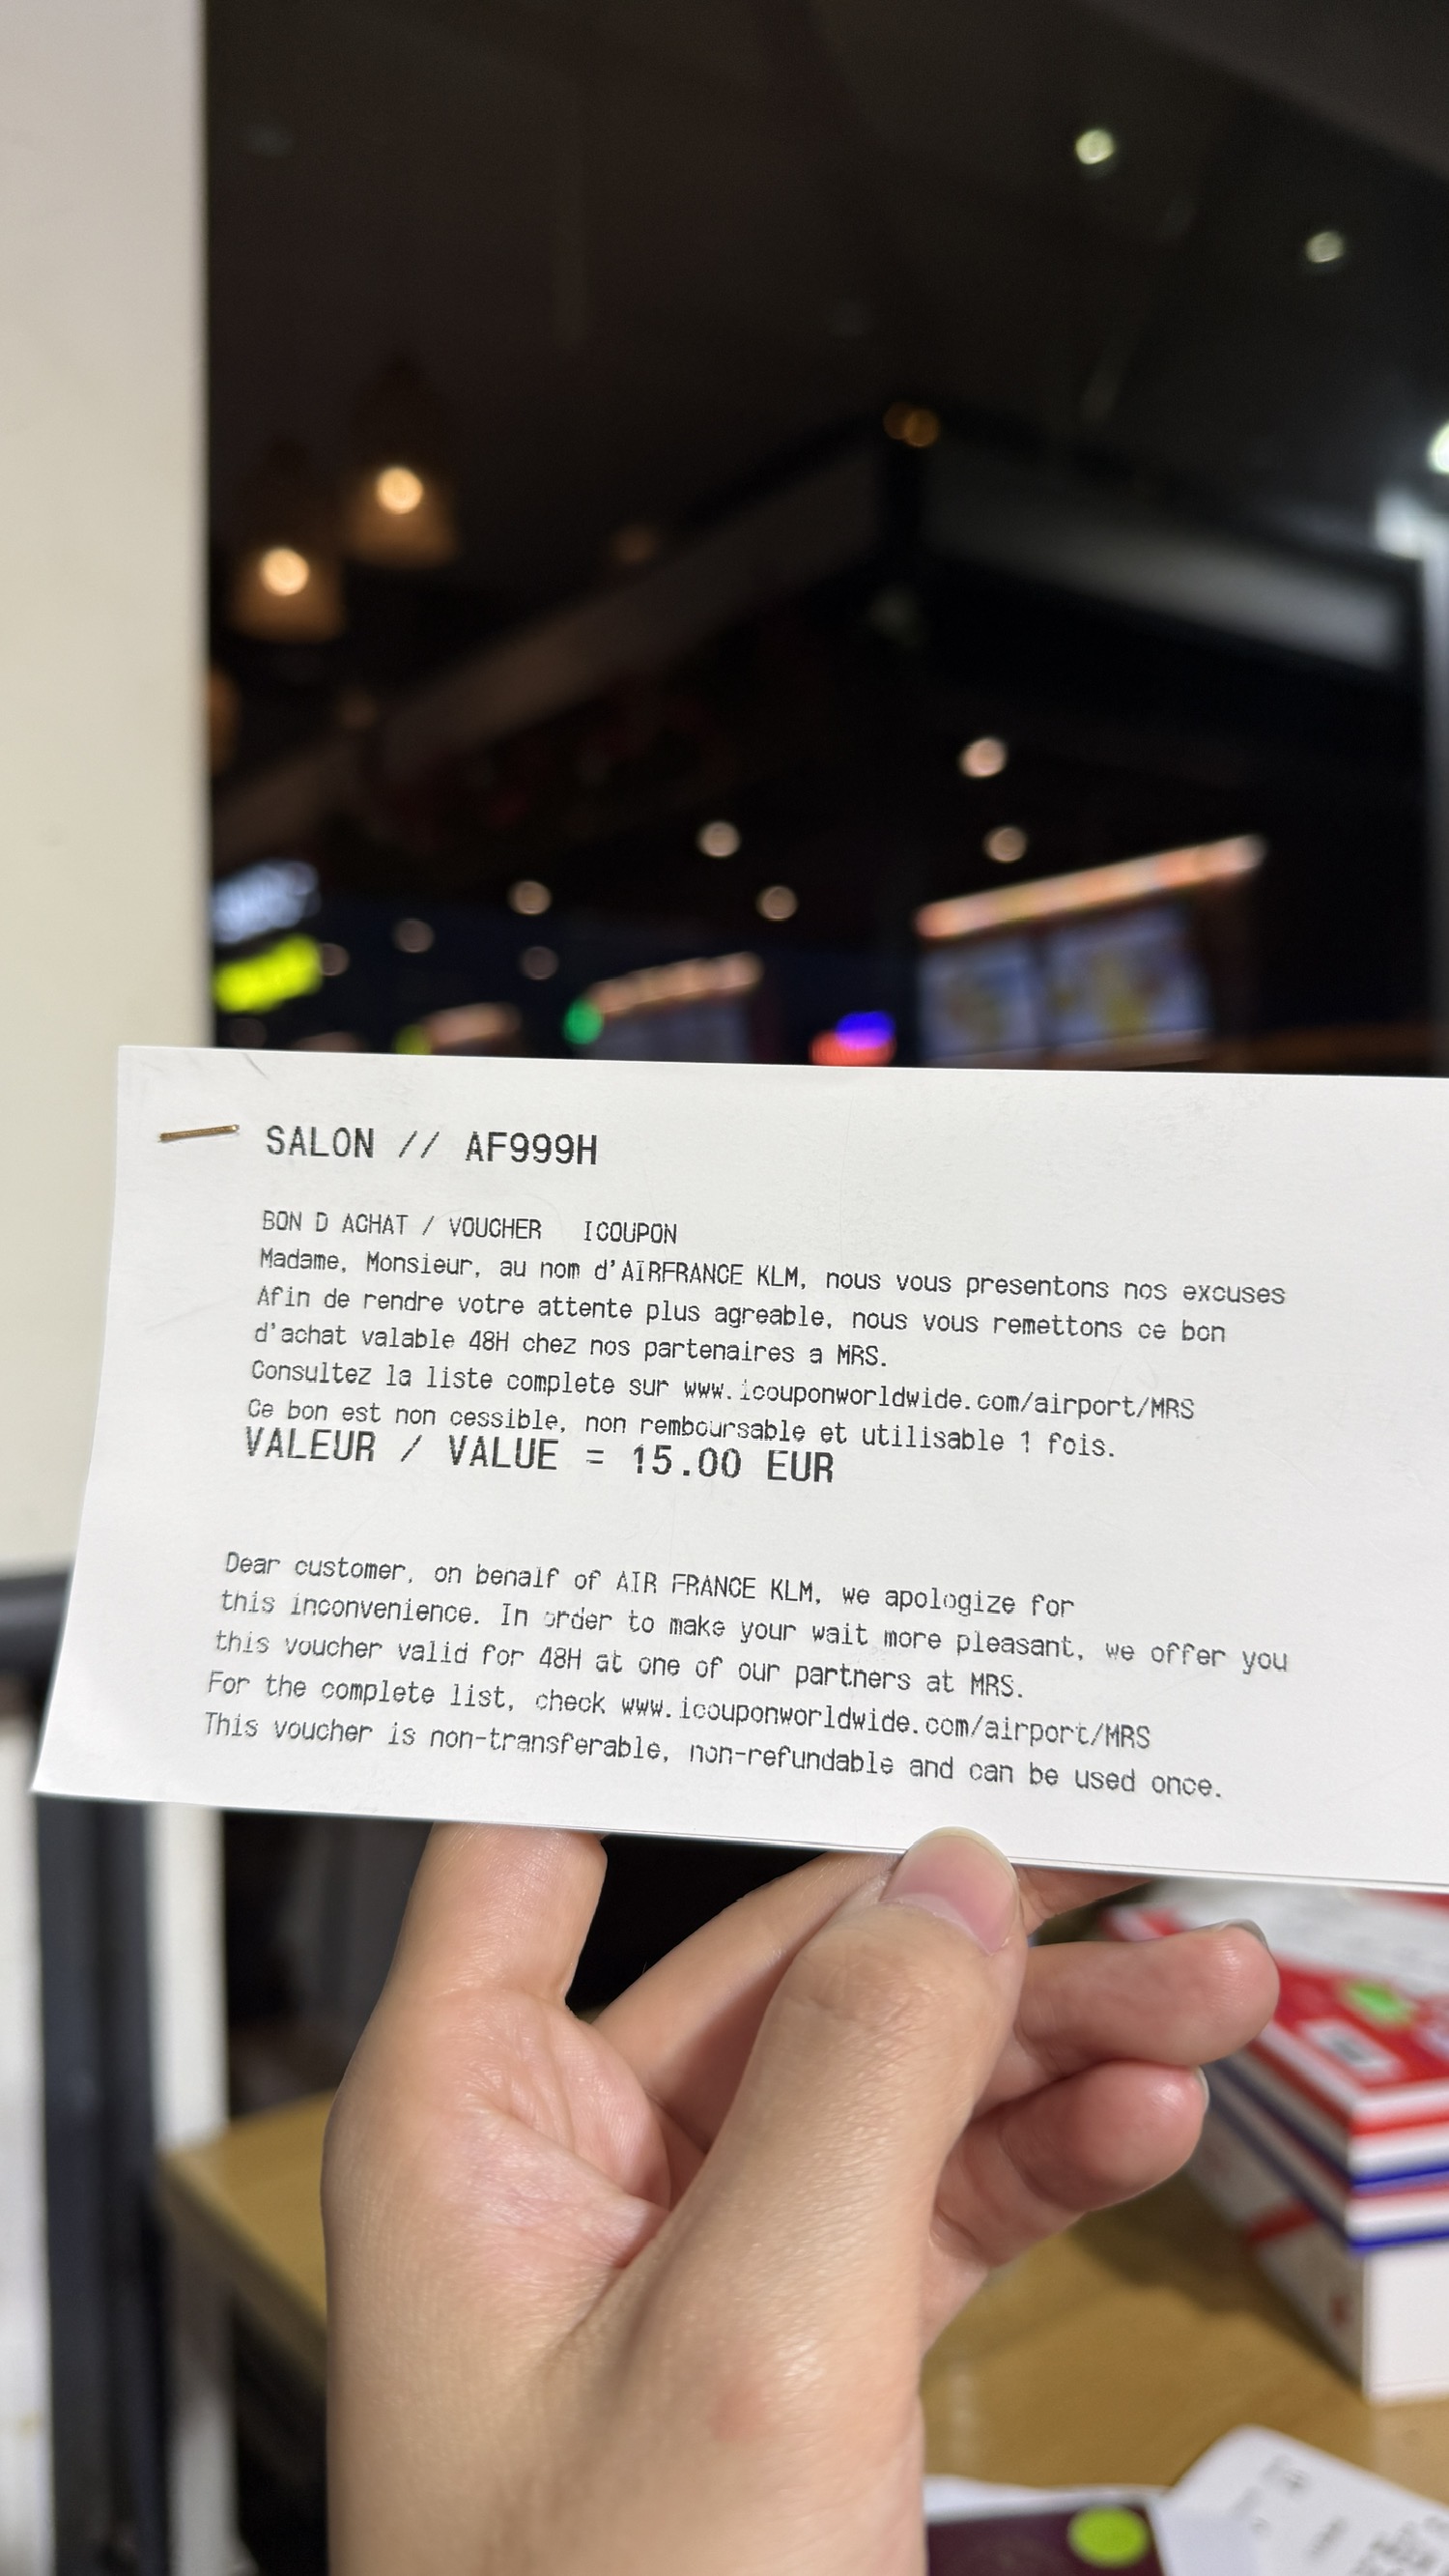 SALON // AF999H
BON D ACHAT / VOUCHER ICOUPON
Madame, Monsieur, au nom d'AIRFRANCE KLM, nous vous presentons nos excuses
Afin de rendre votre attente plus agreable, nous vous remettons ce bon
d'achat valable 48H chez nos partenaires a MRS.
Consultez la liste complete sur www.icouponworldwide.com/airport/MRS
Ce bon est non cessible, non remboursable et utilisable 1 fois.
VALEUR / VALUE = 15.00 EUR
Dear customer, on behalf of AIR FRANCE KLM, we apologize for
this inconvenience. In order to make your wait more pleasant, we offer you
this voucher valid for 48H at one of our partners at MRS.
For the complete list, check www.icouponworldwide.com/airport/MRS
This voucher is non-transferable, non-refundable and can be used once.